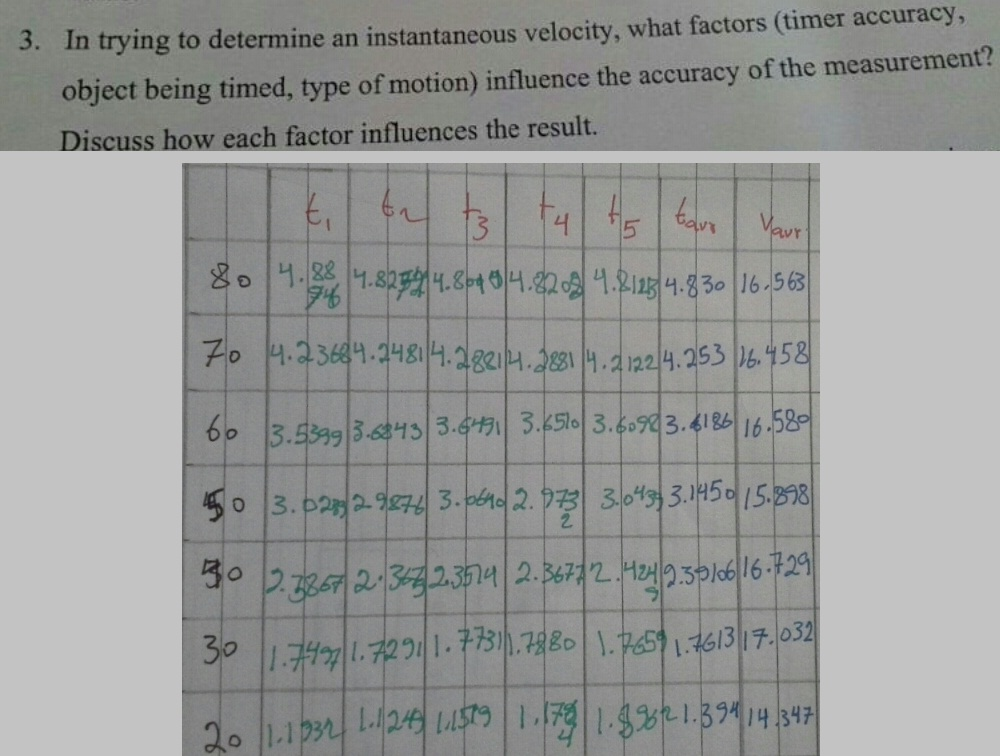 3. In trying to determine an instantaneous velocity, what factors (timer accuracy,
object being timed, type of motion) influence the accuracy of the measurement?
Discuss how each factor influences the result.
t1 t2 t3 t4 t5 tavr Vavr
80 4.8876 4.8203 4.8123 4.830 16.563
70 4.2368 4.2481 4.2881 4.2881 4.2122 4.253 16.458
60 3.5399 3.6843 3.6491 3.6510 3.6092 3.6186 16.580
50 2.9876 3.0640 2.9732 3.0439 3.1450 15.898
2.3867 2.3514 2.3677 2.4249 2.39106 16.729
30 1.7497 1.7291 1.7731 1.7880 1.7659 1.7613 17.032
20 1.1932 1.1249 1.1519 1.1784 1.394 14.347